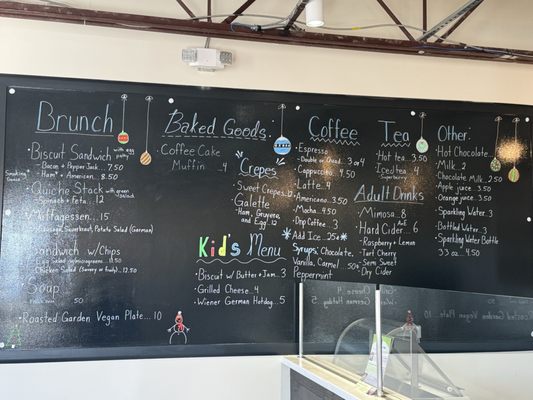 Brunch
Biscuit Sandwich with egg patty
Bacon + Pepper Jack...7.50
Ham + American...8.50
Smoking Goose
Quiche Stack with green salad
Spinach + Feta...12
...15
Sauerkraut, Potato Salad (German)
Sandwich w/Chips
Egg Salad w/microgreens...11.50
Chicken Salad (savory or fruity)...12.50
Soup
50
Roasted Garden Vegan Plate...10
Baked Goods
Coffee Cake
Muffin...4
Crepes
Sweet Crepes...12
Galette
Ham, Gruyere,
and Egg...12
Kid's Menu
Biscuit w/ Butter + Jam...3
Grilled Cheese...4
Wiener German Hotdog...5
Coffee
Espresso
Double or Quad...3 or 4
Cappuccino
Latte...4
Americano...3.50
Mocha...4.50
Drip Coffee...3
Add Ice...25¢
Syrups: Chocolate,
Vanilla, Carmel 50¢
Peppermint
Tea
Hot tea...3.50
Iced tea...4
Superberry
Adult Drinks
Mimosa...8
Hard Cider...6
Raspberry + Lemon
Tart Cherry
Semi Sweet
Dry Cider
Other:
Hot Chocolate
Milk...2
Chocolate Milk...2.50
Apple juice...3.50
Orange juice...3.50
Sparkling Water...3
Bottled Water...3
Sparkling Water Bottle
33 oz...4.50